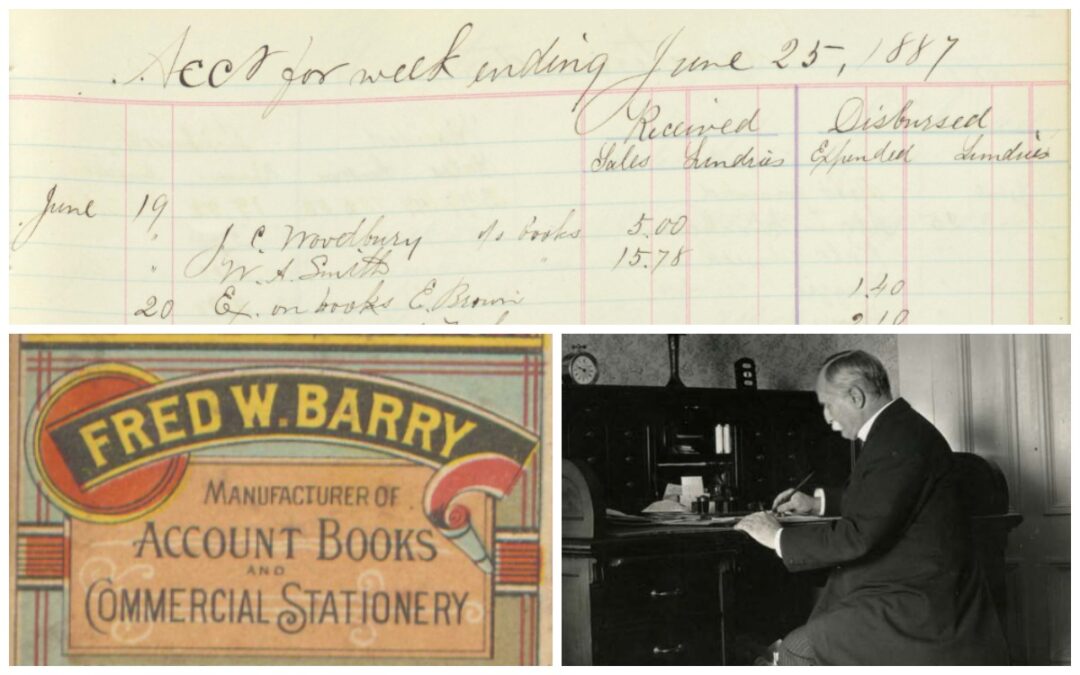 Acct for week ending June 25, 1887
Received Disbursed
Sales Sundries Expended Sundries
June 19
" J. C. Woodbury o/s books 5.00
" W. A. Smith " 15.78
20 Ex. on books E. Brown 1.40
2.10
FRED W. BARRY
MANUFACTURER OF
ACCOUNT BOOKS
AND
COMMERCIAL STATIONERY